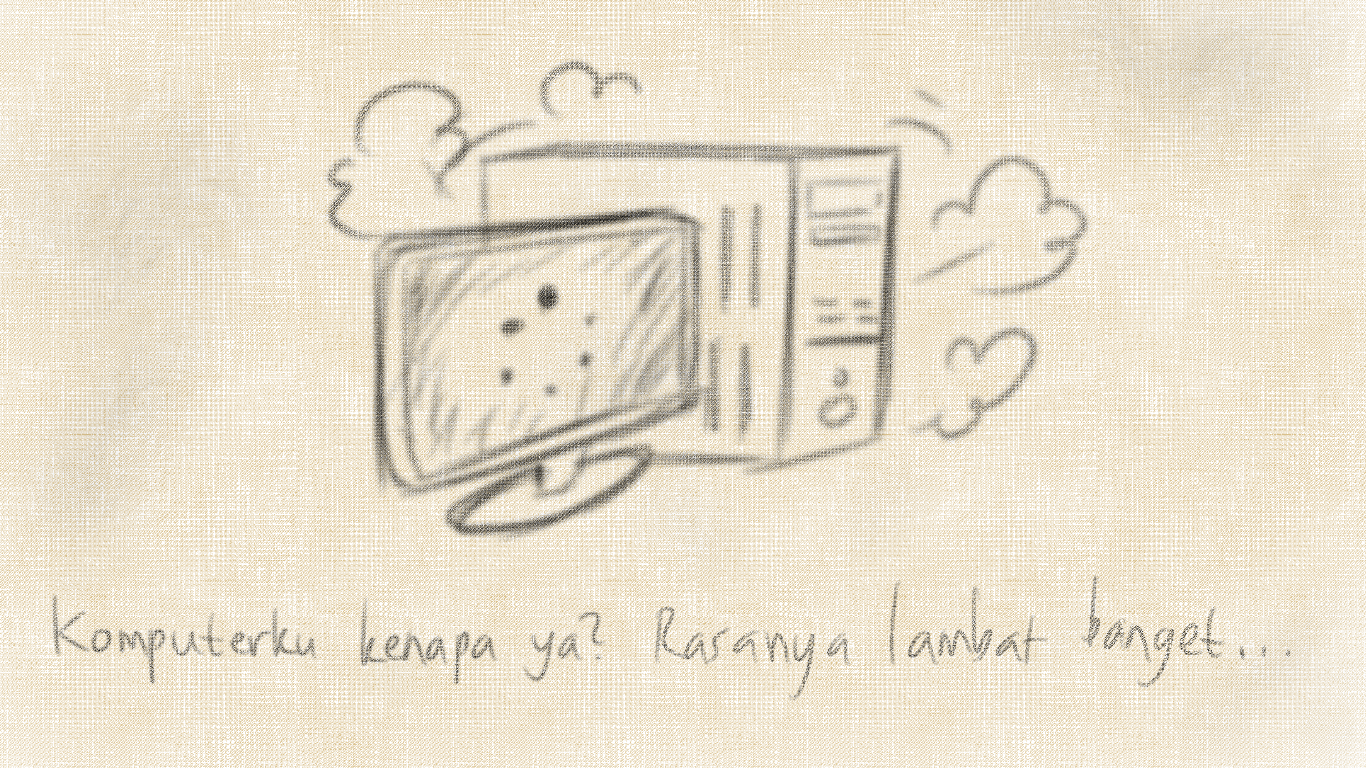 Komputerku kenapa ya? Rasanya lambat banget...